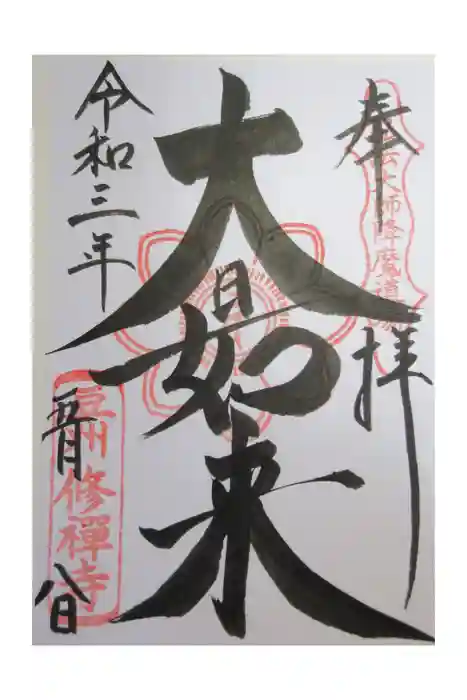 奉拝
弘法大師降魔道場
大日如来
令和三年
五月
八日
豆州修禪寺